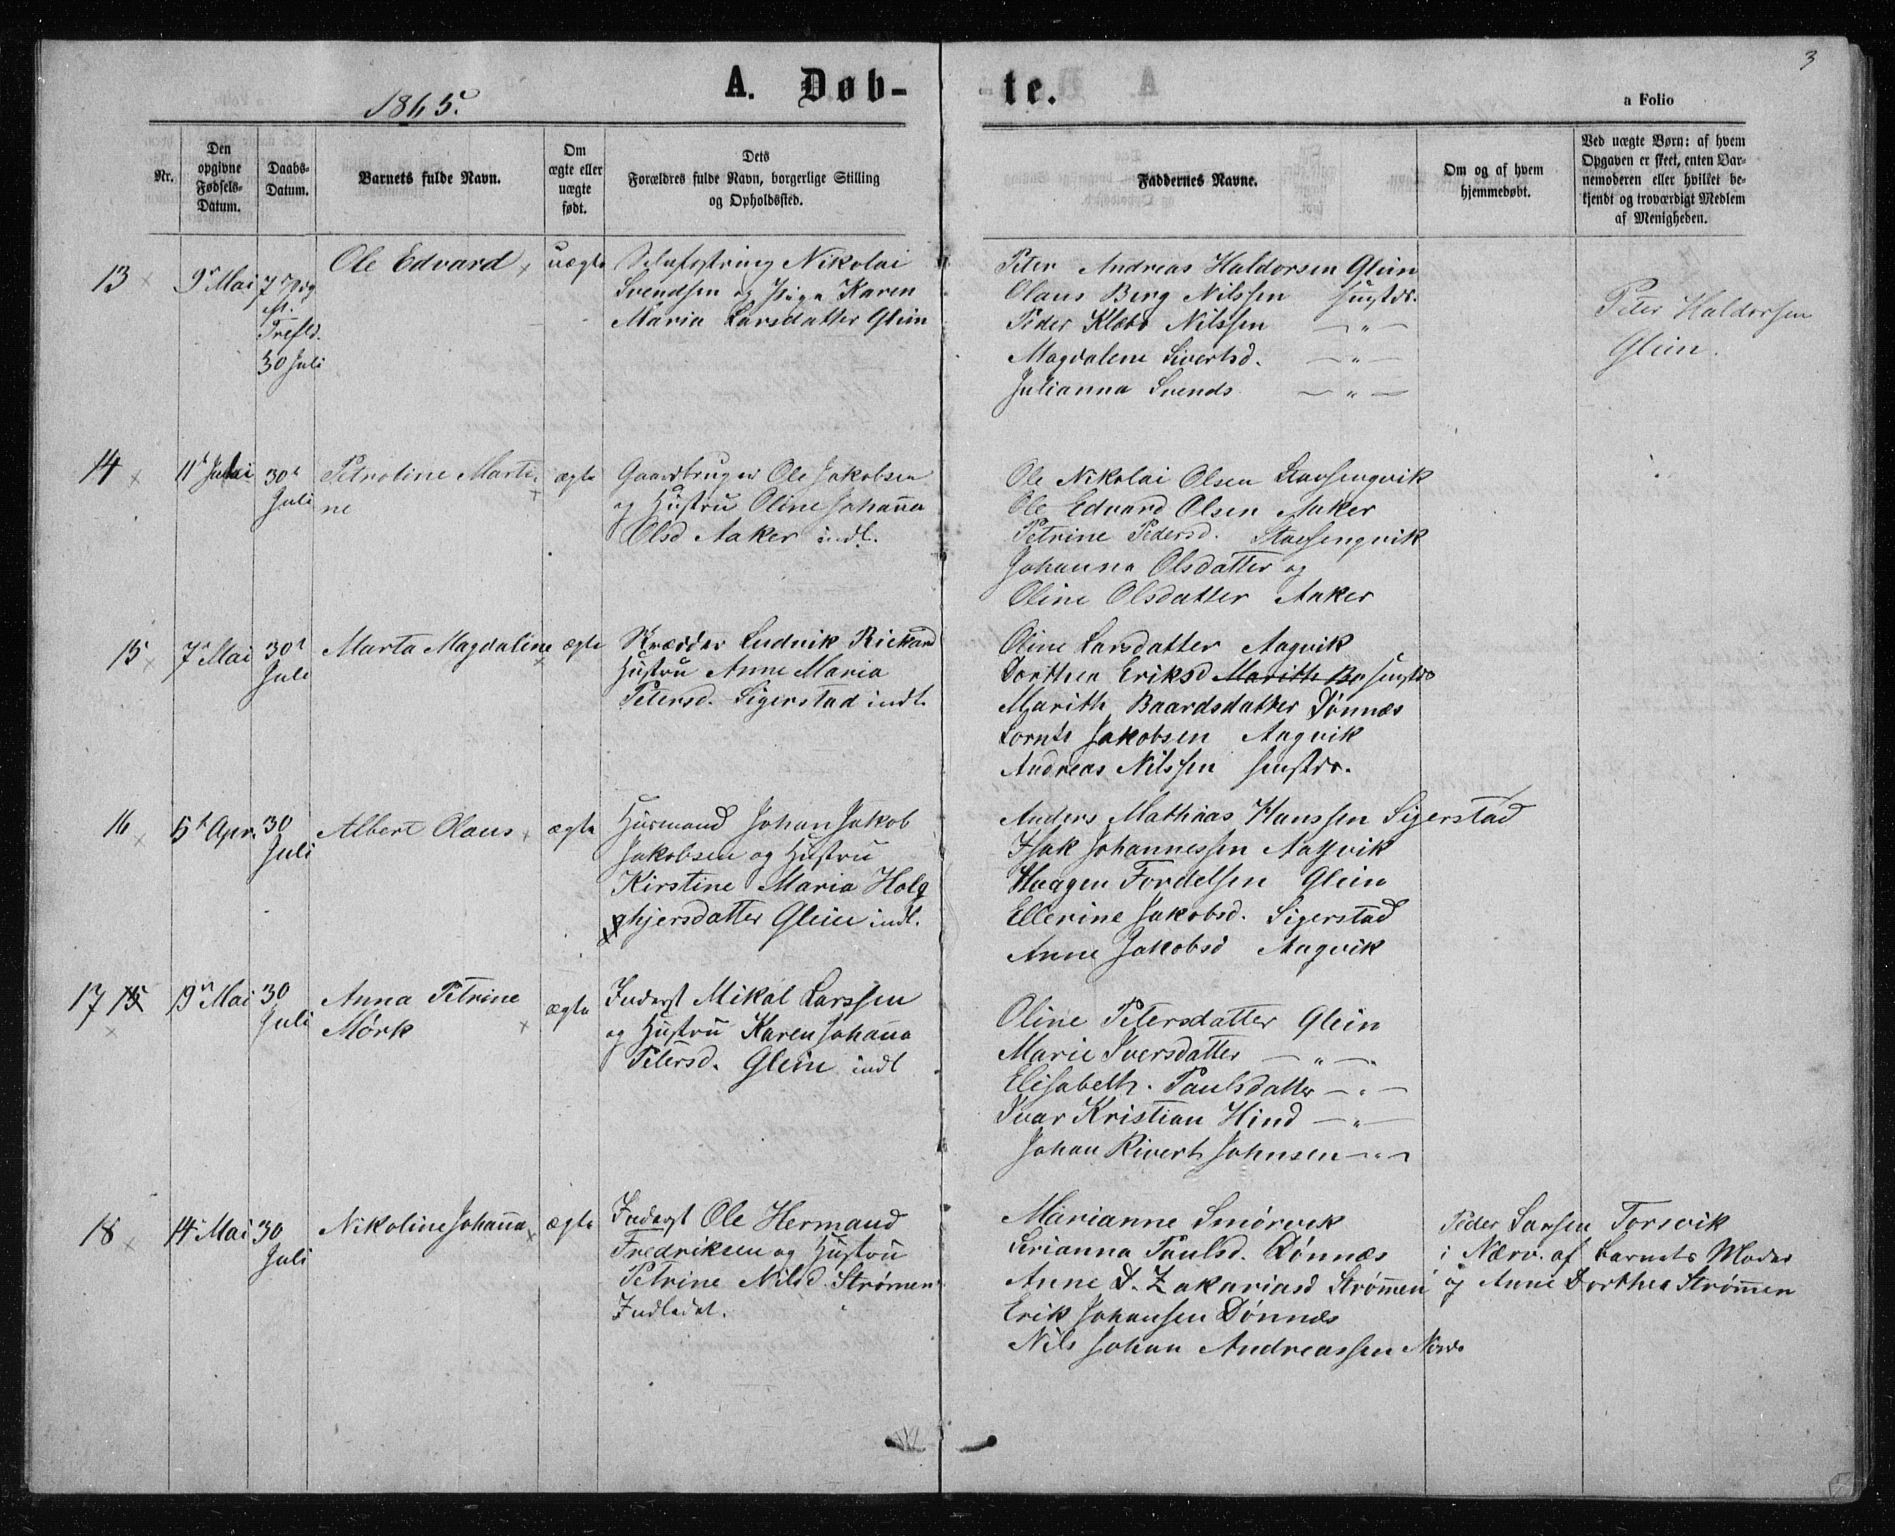 3
1865.
A. Døb-
te.
a Folio
Nr.
Den
opgivne
Fødsels-
Datum.
Daabs-
Datum.
Barnets fulde Navn.
Om
ægte eller
uægte
født.
Dets
Forældres fulde Navn, borgerlige Stilling
og Opholdssted.
Faddernes Navne.
Om og af hvem
hjemmedøbt.
Ved uægte Børn: af hvem
Opgaven er skeet, enten Bar-
nemoderen eller hvilket be-
kjendt og troværdigt Medlem
af Menigheden.
13
9 Mai
7
Trefld.
30 Juli
Ole Edvard
uægte
Nikolai
Svendsen og Pige Karen
Maria Larsdatter Glein
Peter Andreas Haldorsen Glein
Olaus Berg Nilssen
Peder Klæbo Nilssen — " —
Magdalene Sivertsd. — " —
Julianna Svends — " —
Peter Haldorsen
Glein.
14
11 Juli
30
Juli
Petroline Marti-
ne
ægte
Gaardbruger Ole Jakobsen
og Hustru Oline Johanna
Olsd Aaker indl.
Ole Nikolai Olsen Stavsengvik
Ole Edvard Olsen Aaker
Petrine Pedersd. Stavsengvik
Johanna Olsdatter og
Oline Olsdatter Aaker
15
7 Mai
30
Juli
Marta Magdaline
ægte
Skrædder Ludvik Rickard
Hustru Anne Maria
Petersd. Sigerstad indl.
Oline Larsdatter Aagvik
Dorthea Eriksd Marith Ba
Marith Baardsdatter Dönnæs
Lornts Jakobsen Aagvik
Andreas Nilssen
16
5 Apr.
30
Juli
Albert Olaus
ægte
Husmand Johan Jakob
Jakobsen og Hustru
Kirstine Maria Holg
hjersdatter Glein indl.
Anders Mathias Hanssen Sigerstad
Isak Johannessen Aagvik
Haagen Fordelsen Glein
Ellerine Jakobsd. Sigerstad
Anne Jakobsd Aagvik
17 15
19 Mai
30
Juli
Anna Petrine
Mörk
ægte
Inderst Mikal Larssen
og Hustru Karen Johanna
Petersd. Glein indl
Oline Petersdatter Glein
Marie Iversdatter — " —
Elisabeth Paulsdatter — " —
Ivar Kristian Hind — " —
Johan Sivert Johnsen — " —
18
14 Mai
30
Juli
Nikoline Johanna
ægte
Inderst Ole Hermand
Fredriksen og Hustru
Petrine Nilsd. Strömen
Indladet.
Marianne Smörvik
Serianna Paulsd. Dönnæs
Anne D. Zakariasd Strömen
Erik Johansen Dönnæs
Nils Johan Andreassen
Peder Larsen Torsvik
i Nærv. af Barnets Moder
og Anne Dorthea Strömen